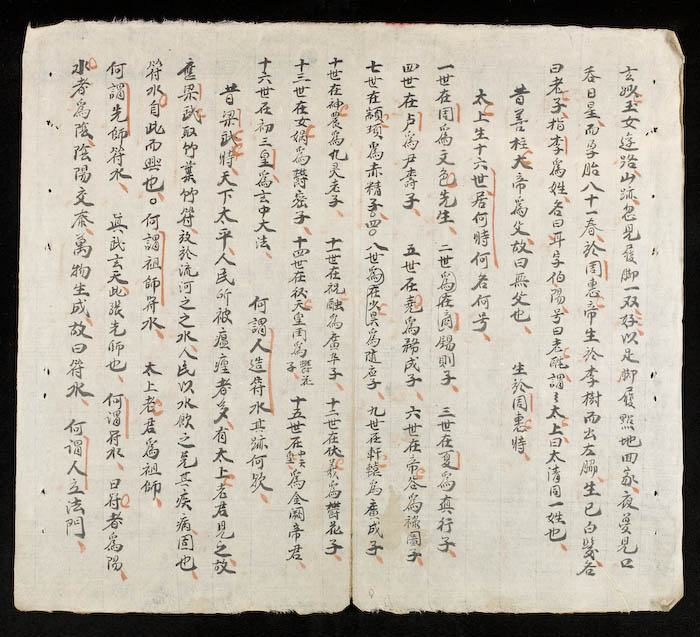 玄妙玉女逢路山跡忽見履脚一双好以足脚履點地回家夜夢見口
吞日星而孕胎八十一春於周惠帝生於李樹而出左脇生已白髮名
曰老子指李為姓名曰耳字伯陽号曰老聃謂之太上曰太清同一姓也
昔善柱大帝為父故曰無父也 生於周惠時
太上生十六世居何時何名何号
一世在周為文邑先生 二世為在商錫則子 三世在夏為真行子
四世在卢為尹壽子 五世在堯為務成子 六世在帝夋為祿圖子
七世在顓頊為赤精子 八世為在少昊為隨应子 九世在軒轅為廣成子
十世在神農為九灵老子 十一世在祝融為廣寿子 十二世在伏羲為欝花子
十三世在女媧為欝密子 十四世在 天皇 為 子 十五世在 為金闕帝君
十六世在初三皇為玄中大法 何謂人造符水其跡何欤
昔梁武時天下太平人民所被瘟瘴者多有太上老君見之故
應梁武取竹葉竹符放於流河之之水人民以水飲之免其疾病固也
符水自此而興也 何謂祖師符水 太上老君為祖師
何謂先師符水 真武玄天此張先師也 何謂符水 曰符者為陽
水者為陰陰陽交泰萬物生成故曰符水 何謂人立法門